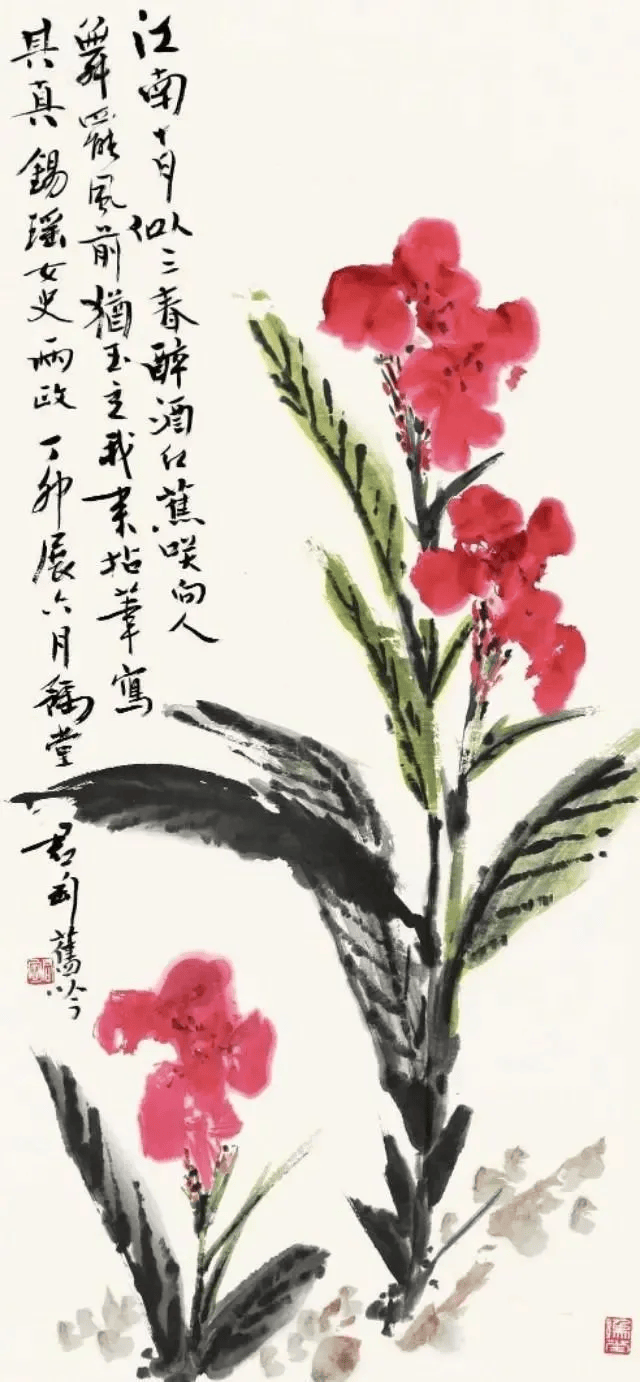 江南十月似三春醉酒红蕉咲向人
舞罷風前猶玉立我来拈筆寫
其真 錫瑶女史两政 丁卯夏六月豫堂君匋舊吟